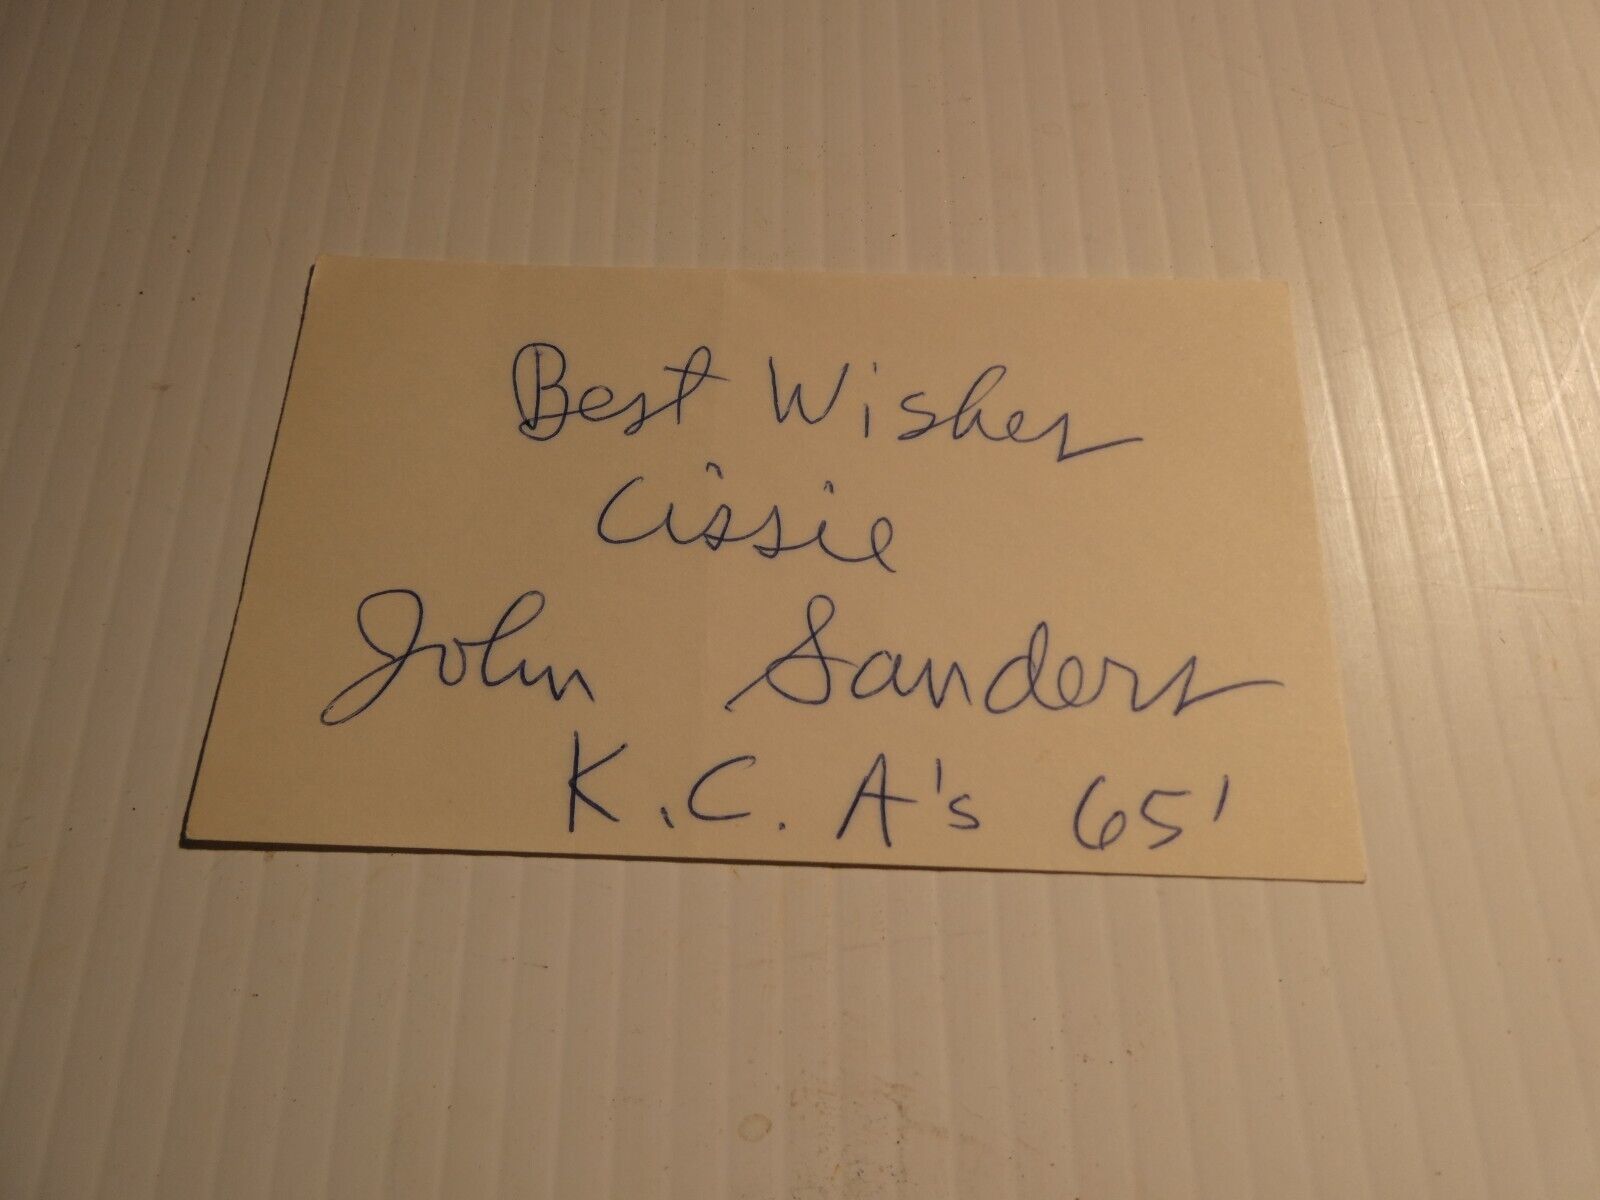 Best Wishes
Cissie
John Sanders
K.C. A's 65'